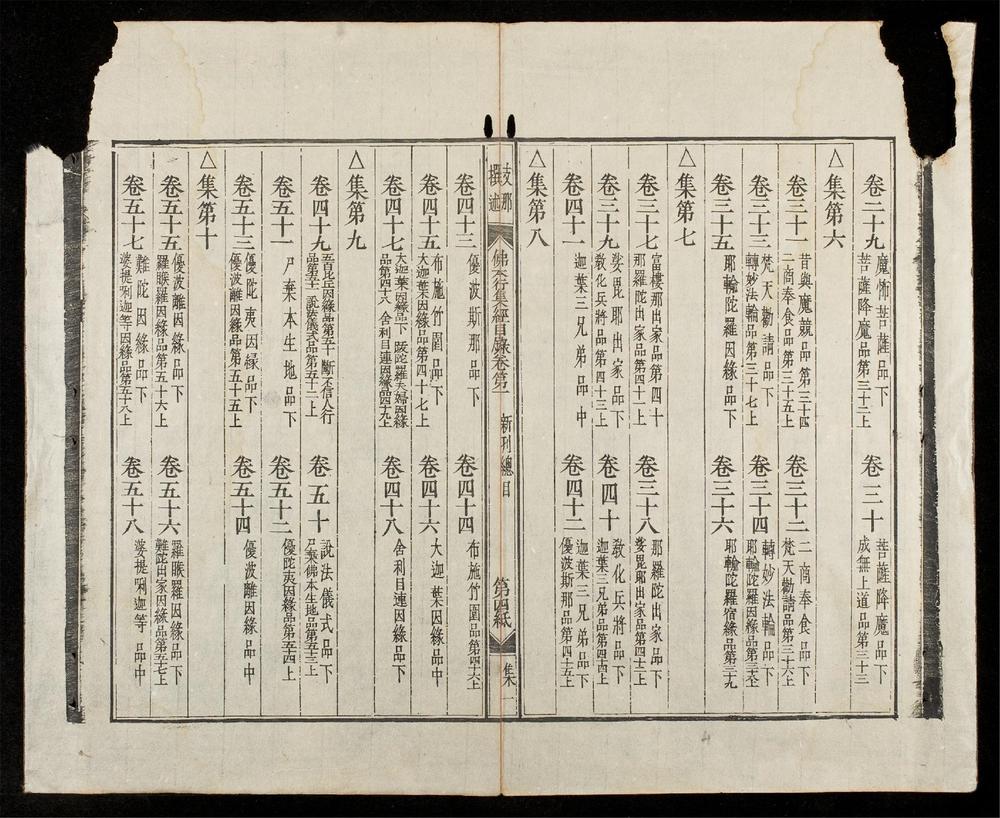 卷二十九 魔怖菩薩品下 菩薩降魔品第三十二上 卷三十 菩薩降魔品下 成無上道品第三十三
△集第六
卷三十一 昔與魔競品第三十四 二商奉食品第三十五上 卷三十二 二商奉食品下 梵天勸請品第三十六上
卷三十三 梵天勸請品下 轉妙法輪品第三十七上 卷三十四 轉妙法輪品下 耶輸陀羅因緣品第三十八上
卷三十五 耶輸陀羅因緣品下 卷三十六 耶輸陀羅宿緣品第三十九
△集第七
卷三十七 富樓那出家品第四十 那羅陀出家品第四十一上 卷三十八 那羅陀出家品下 娑毘耶出家品第四十二上
卷三十九 娑毘耶出家品下 敎化兵將品第四十三上 卷四十 敎化兵將品下 迦葉三兄弟品第四十四上
卷四十一 迦葉三兄弟品中 卷四十二 迦葉三兄弟品下 優波斯那品第四十五上
△集第八
支那撰述 佛本行集經目錄卷第一 新刊總目 第四紙 集一
卷四十三 優波斯那品下 卷四十四 布施竹園品第四十六上
卷四十五 布施竹園品下 大迦葉因緣品第四十七上 卷四十六 大迦葉因緣品中
卷四十七 大迦葉因緣品下 跋陀羅夫婦因緣品第四十八 舍利目連因緣品第四十九上 卷四十八 舍利目連因緣品下
△集第九
卷四十九 五百比丘因緣品第五十 斷不信人行品第五十一 說法儀式品第五十二上 卷五十 說法儀式品下 尸棄佛本生地品第五十三上
卷五十一 尸棄本生地品下 卷五十二 優陀夷因緣品第五十四上
卷五十三 優陀夷因緣品下 優波離因緣品第五十五上 卷五十四 優波離因緣品中
△集第十
卷五十五 優波離因緣品下 羅睺羅因緣品第五十六上 卷五十六 羅睺羅因緣品下 難陀出家因緣品第五十七上
卷五十七 難陀因緣品下 婆提唎迦等因緣品第五十八上 卷五十八 婆提唎迦等品中